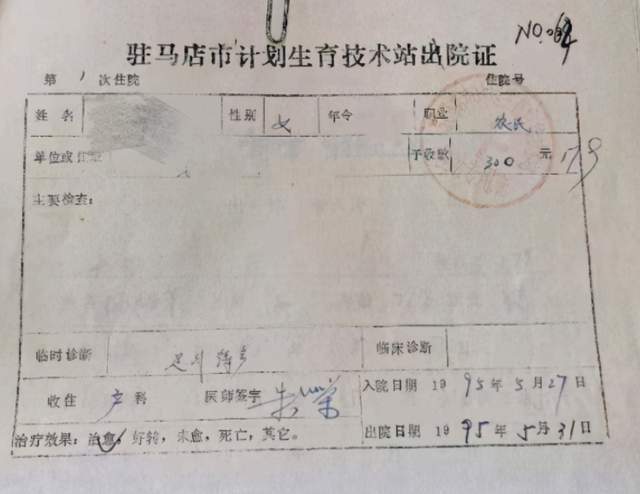 NO.
驻马店市计划生育技术站出院证
第 1 次住院 住院号
姓名 性别 女 年令 职业 农民
单位或住址 予收款 300 元 179
主要检查：
临时诊断 足月待产 临床诊断
收住 产科 医师签字 入院日期 1995年5月27日
治疗效果：治愈，好转，未愈，死亡，其它。 出院日期 1995年5月31日